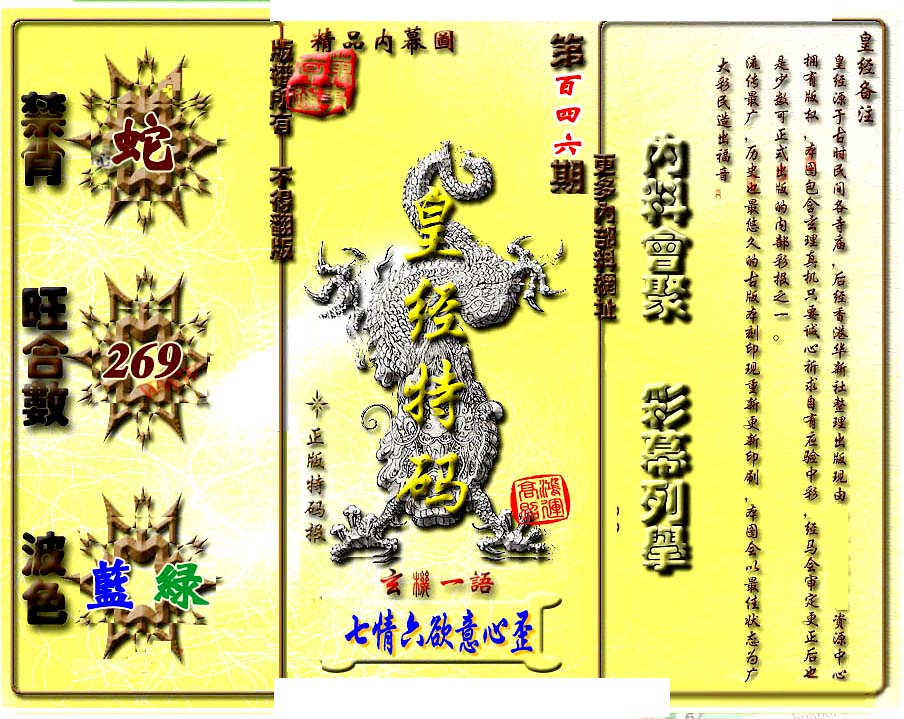 皇经备注
皇经源于古时民间各寺庙,后经香港华新社整理出版现由 资源中心
拥有版权,本图包含玄理真机只要诚心祈求自有应验中彩,经马会审定更正后也
是少数可正式出版的内部彩报之一。
流传最广,历史也最悠久的古版本刻印现重新更新印刷,本图会以最佳状态为广
大彩民造出福音
內料會聚 彩幕列舉
更多內部料網址
第百四六期
精品內幕圖
皇经特码
正版特码报
鴻運高照
玄機一語
七情六欲意心歪
版權所有 不得翻版
禁肖
蛇
旺合數
269
波色
藍 綠